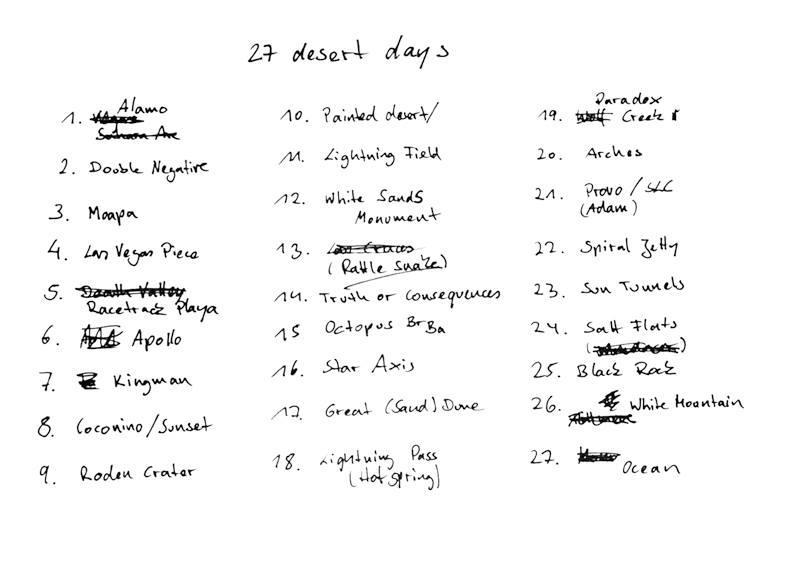 27 desert days
1. Alamo
2. Double Negative
3. Moapa
4. Las Vegas Piece
5. Death Valley
Racetrack Playa
6. Apollo
7. Kingman
8. Coconino/Sunset
9. Roden Crater
10. Painted desert/
11. Lightning Field
12. White Sands
Monument
13. Las Cruces
(Rattle Snake)
14. Truth or Consequences
15 Octopus BrBa
16. Star Axis
17. Great (Sand) Dune
18. Lightning Pass
(Hot Spring)
Paradox
19. Creek
20. Arches
21. Provo / SLC
(Adam)
22. Spiral Jetty
23. Sun Tunnels
24. Salt Flats
25. Black Rock
26. White Mountain
27. Ocean